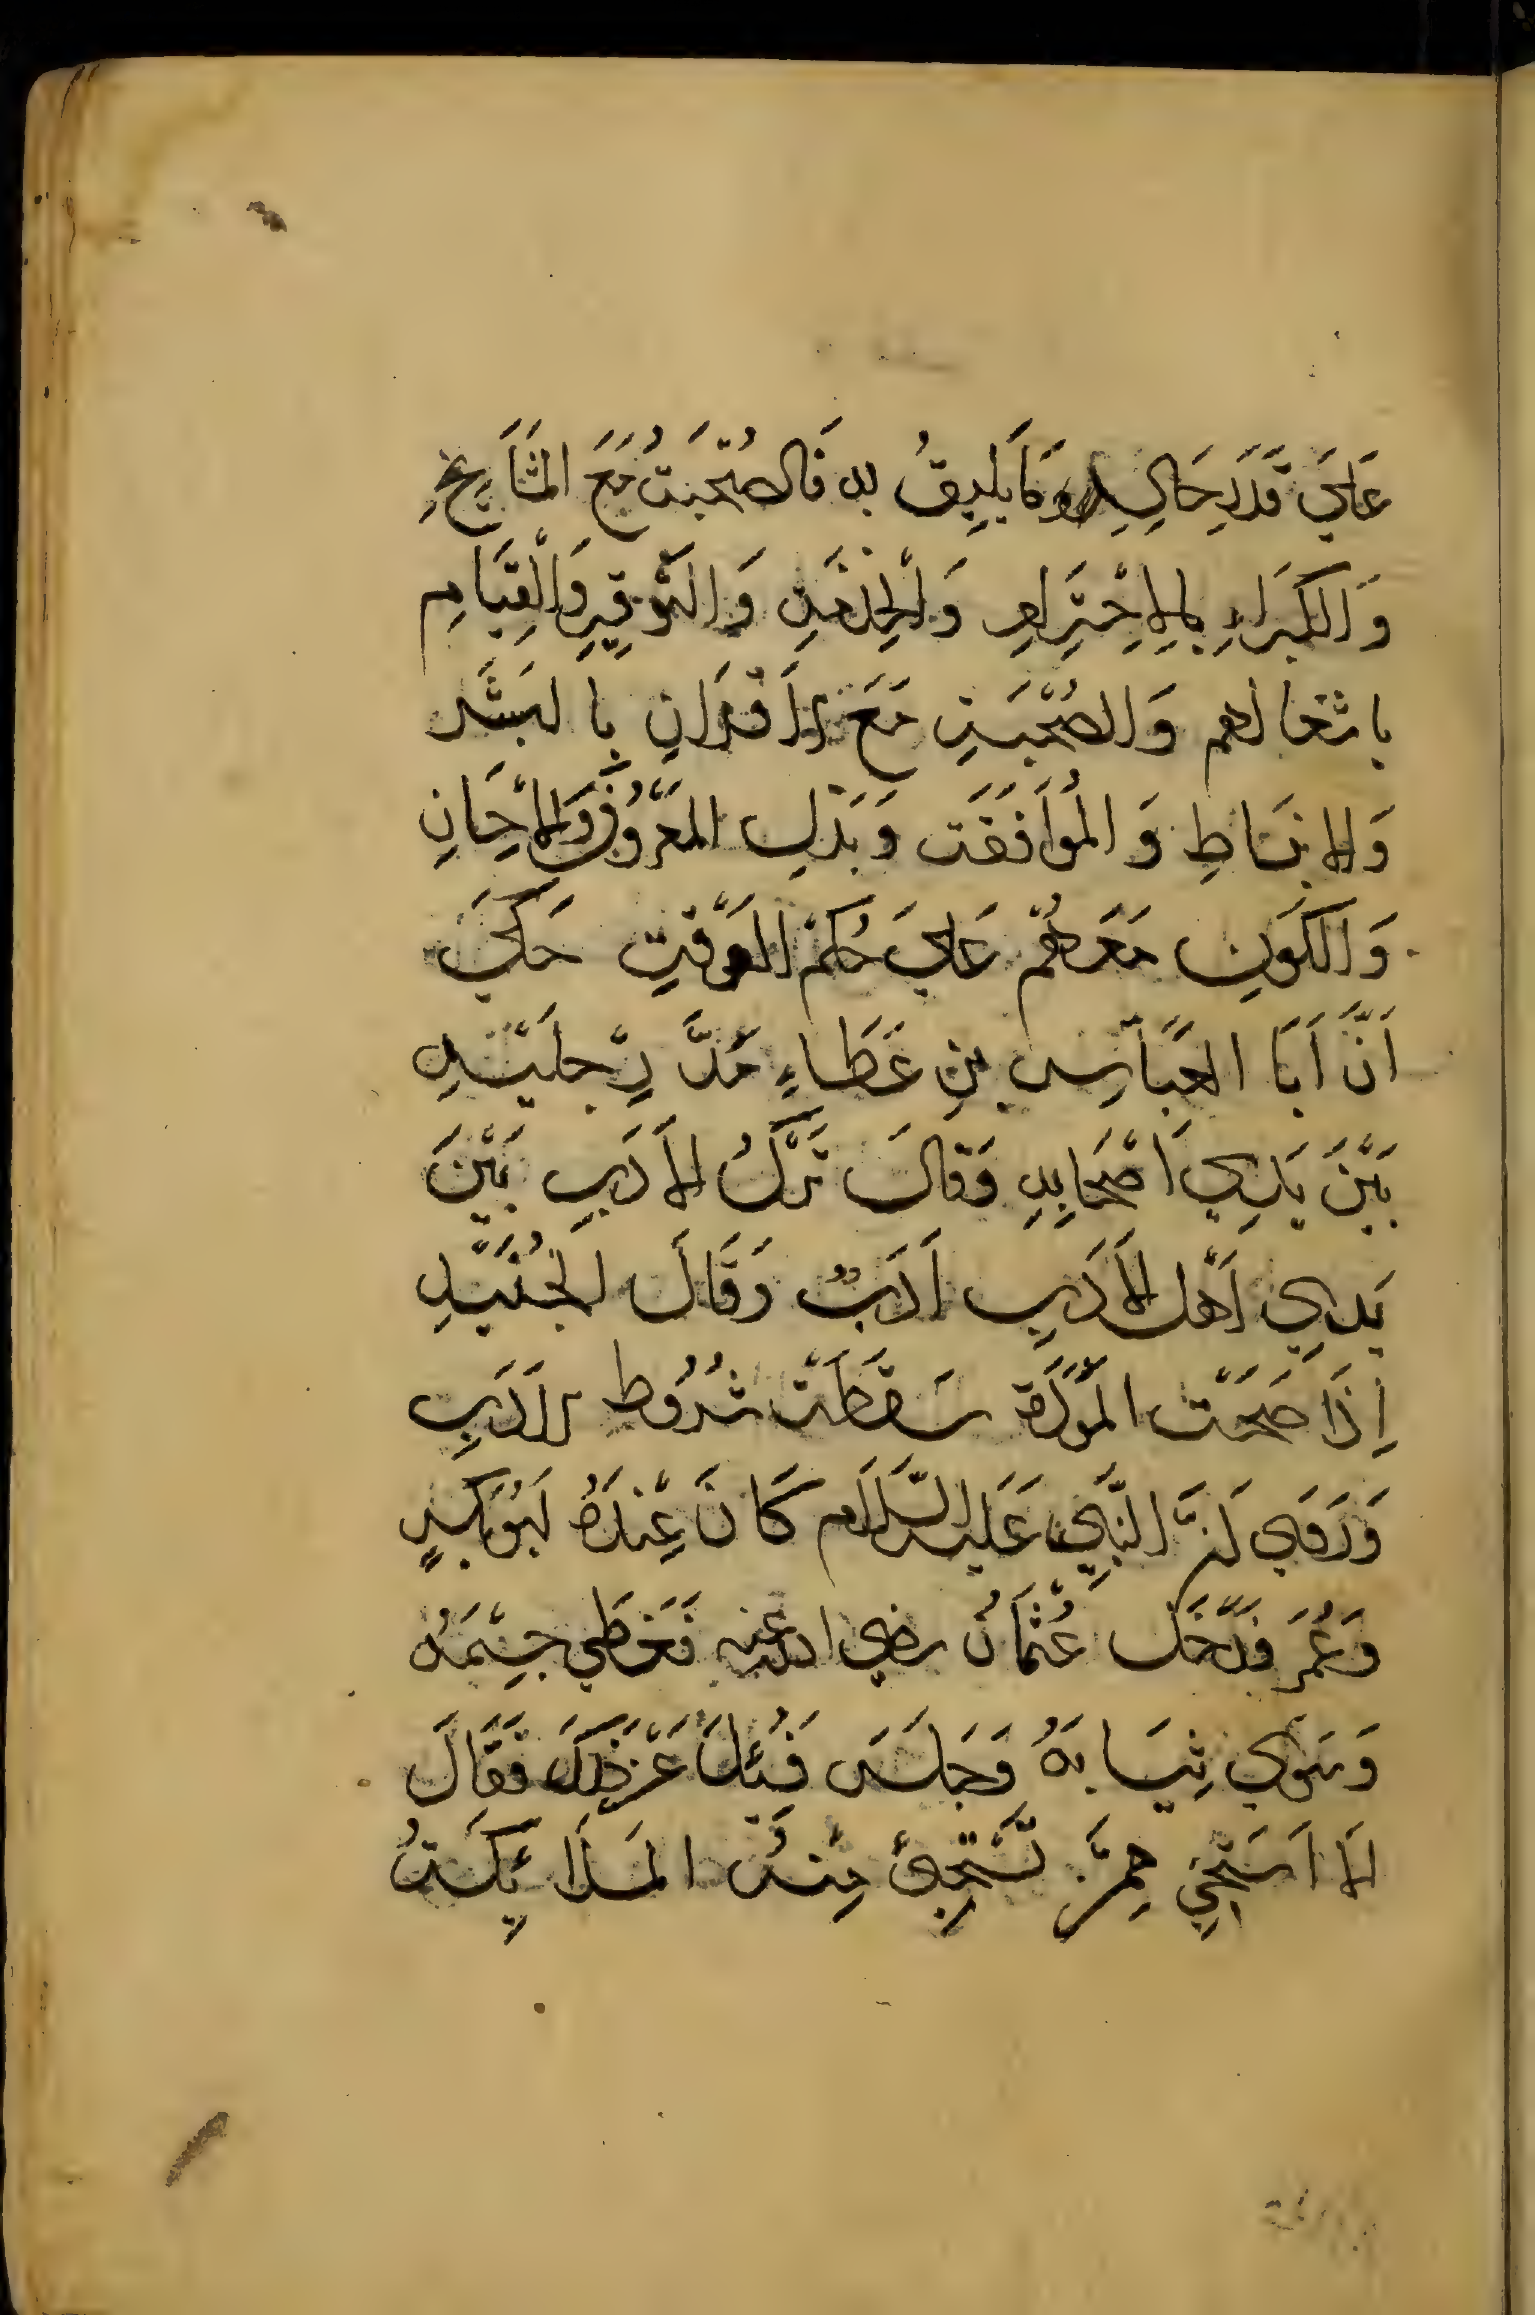 عَلَي قَدَرِ حَالِهِ وَمَا يَلِيقُ بِهِ فَالصُحْبَتُ مَعَ المَشَايِخِ
وَالكُبَرَاءِ بِالاِحْتِرَامِ وَالْخِدْمَةِ وَالتَّوْقِيرِ وَالْقِيَامِ
باشغالهم وَالصُحْبَتِ مَعَ الاَقْرَانِ بِالبَشَر
وَالانبَسَاطِ وَالمُوَافَقَت وَبَذْلِ المَعْرُوفِ وَالاِحْسَانِ
وَالكَوْنِ مَعَهُمْ عَلَي حُكْمِ الوَقْتِ حَكَي
اَنَّ اَبَا العَبَّاسِ بنِ عَطَاءٍ مَدَّ رِجْلَيْهِ
بَيْنَ يَدَي اَصْحَابِهِ وَقَالَ تَرْكُ الاَدَبِ بَيْنَ
يَدَي اَهْلِ الاَدَبِ اَدَبٌ وَقَالَ الجُنَيْدِ
اِذَا صَحَّت المَوَدَّة سَقَطَتْ شُرُوط الاَدَبِ
وَرَوَي اَنَّ النَّبِي عَلَيه السَّلَام كَانَ عِنْدَهُ اَبُوبَكرٍ
وَعُمَرَ فَدَخَلَ عُثْمَانُ رضي الله عنه فَغَطي جِسْمَهُ
وَسَوَي ثِيَابَهُ وَجَلَسَ فَسُئِلَ عَنْ ذَلِكَ فَقَالَ
اَلَا اَسْتَحْيِي مِمَّنْ تَسْتَحْيِ مِنْهُ المَلَائِكَتُ